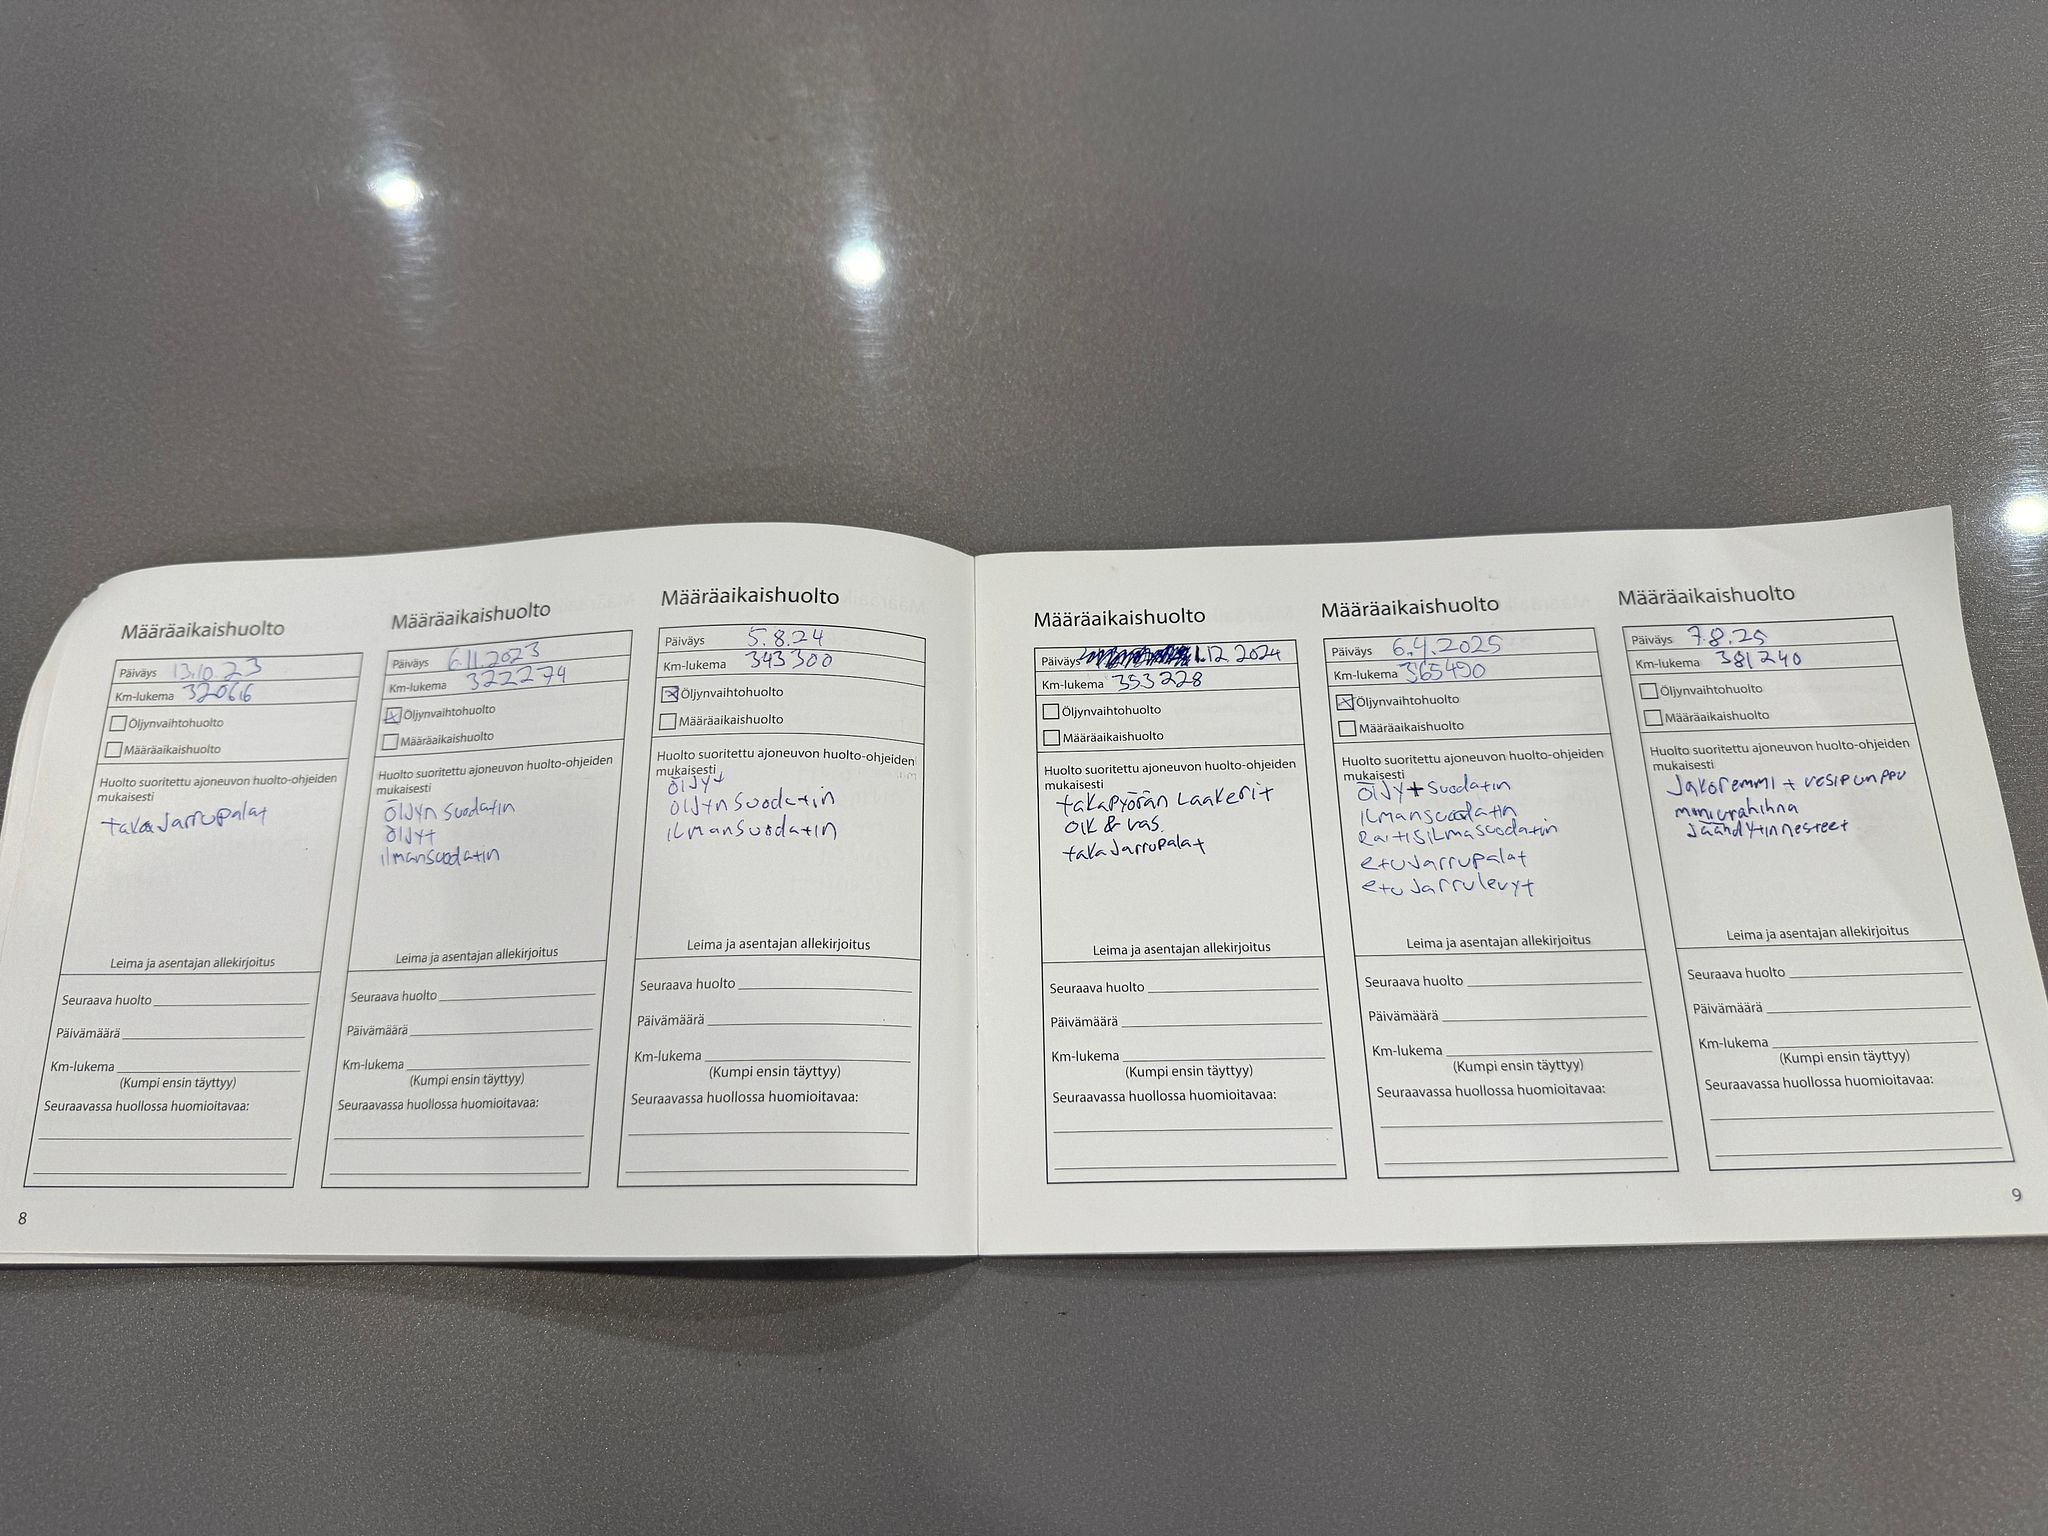 Määräaikaishuolto
Päiväys 13.10.23
Km-lukema 320616
Öljynvaihtohuolto
Määräaikaishuolto
Huolto suoritettu ajoneuvon huolto-ohjeiden
mukaisesti
taka Jarrupalat
Leima ja asentajan allekirjoitus
Seuraava huolto
Päivämäärä
Km-lukema
(Kumpi ensin täyttyy)
Seuraavassa huollossa huomioitavaa:
8
Määräaikaishuolto
Päiväys 6.11.2023
Km-lukema 322274
Öljynvaihtohuolto
Määräaikaishuolto
Huolto suoritettu ajoneuvon huolto-ohjeiden
mukaisesti
öljyn suodatin
öljyt
ilmansuodatin
Leima ja asentajan allekirjoitus
Seuraava huolto
Päivämäärä
Km-lukema
(Kumpi ensin täyttyy)
Seuraavassa huollossa huomioitavaa:
Määräaikaishuolto
Päiväys 5.8.24
Km-lukema 343300
Öljynvaihtohuolto
Määräaikaishuolto
Huolto suoritettu ajoneuvon huolto-ohjeiden
mukaisesti
öljyt
öljyn suodatin
ilmansuodatin
Leima ja asentajan allekirjoitus
Seuraava huolto
Päivämäärä
Km-lukema
(Kumpi ensin täyttyy)
Seuraavassa huollossa huomioitavaa:
Määräaikaishuolto
Päiväys 1.12.2024
Km-lukema 353228
Öljynvaihtohuolto
Määräaikaishuolto
Huolto suoritettu ajoneuvon huolto-ohjeiden
mukaisesti
takapyörän Laakerit
oik & vas.
taka Jarrupalat
Leima ja asentajan allekirjoitus
Seuraava huolto
Päivämäärä
Km-lukema
(Kumpi ensin täyttyy)
Seuraavassa huollossa huomioitavaa:
Määräaikaishuolto
Päiväys 6.4.2025
Km-lukema 365490
Öljynvaihtohuolto
Määräaikaishuolto
Huolto suoritettu ajoneuvon huolto-ohjeiden
mukaisesti
öljy + suodatin
ilmansuodatin
Raitisilmasuodatin
etu Jarrupalat
etu Jarrulevyt
Leima ja asentajan allekirjoitus
Seuraava huolto
Päivämäärä
Km-lukema
(Kumpi ensin täyttyy)
Seuraavassa huollossa huomioitavaa:
Määräaikaishuolto
Päiväys 7.8.25
Km-lukema 381240
Öljynvaihtohuolto
Määräaikaishuolto
Huolto suoritettu ajoneuvon huolto-ohjeiden
mukaisesti
Jakoremmi + vesipumppu
moniurahihna
Jäähdytinnesteet
Leima ja asentajan allekirjoitus
Seuraava huolto
Päivämäärä
Km-lukema
(Kumpi ensin täyttyy)
Seuraavassa huollossa huomioitavaa:
9